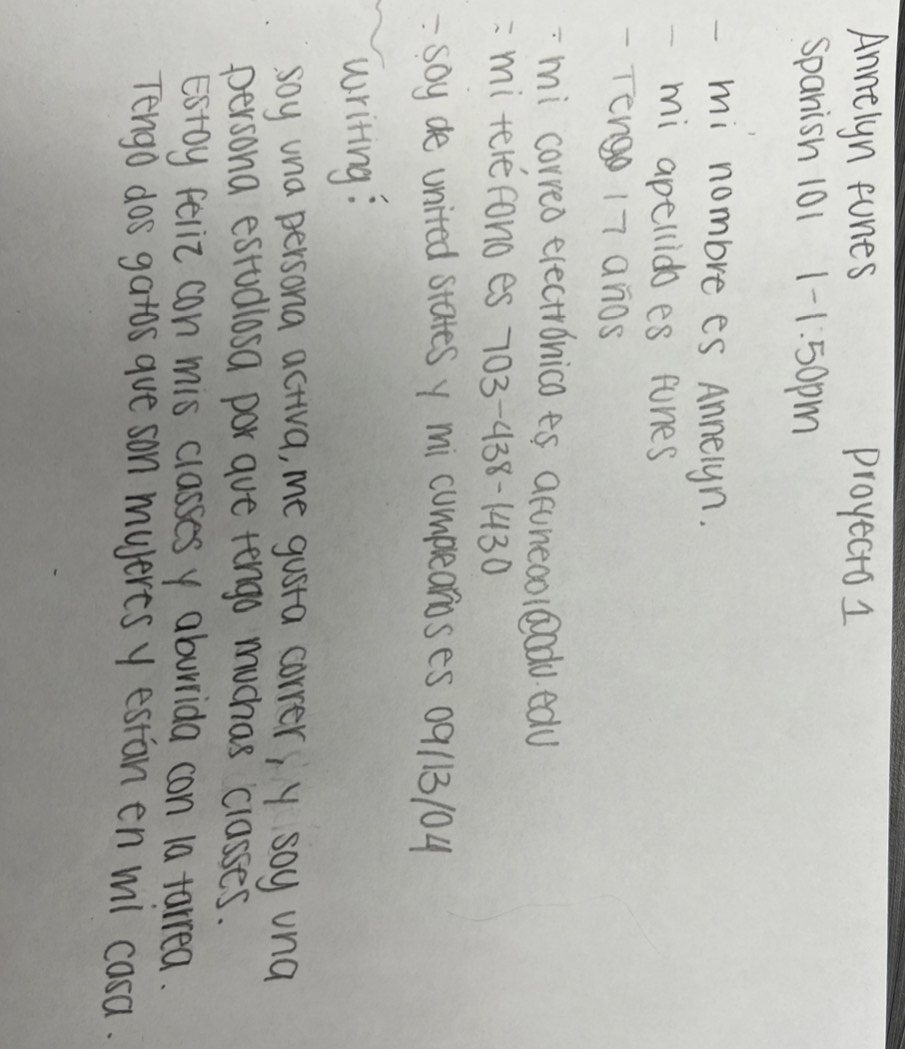 Annelyn funes Proyecto 1
Spanish 101 1-1:50pm
- mi nombre es Annelyn.
- mi apellido es funes
- Tengo 17 años
- mi correo electrónico es afune001@odu.edu
- mi teléfono es 703-438-1430
- soy de united states y mi cumpleaños es 09/13/04
writing:
soy una persona activa, me gusta correr, y soy una
persona estudiosa por que tengo muchas classes.
Estoy feliz con mis classes y aburrida con la tarrea.
Tengo dos gatos que son mujeres y están en mi casa.